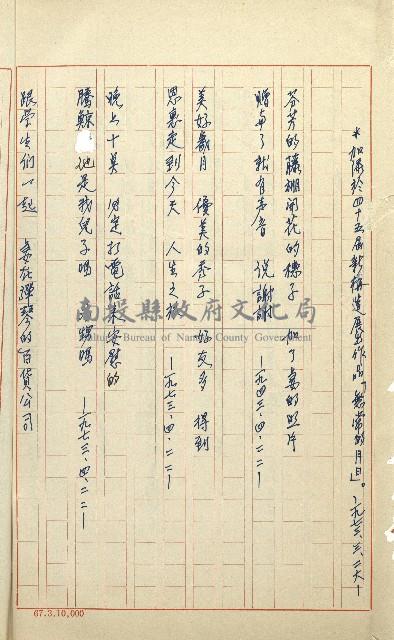 *加添於四十五屆新構造展出作品「無常的月日」。—一九七三、三、二六—
芬芳的藤棚開花的樣子 加了蓋的照片
贈與了點有喜者 說謝謝 —一九四三、四、二二—
美好歲月 優美的季子 好友多 得到
恩惠走到今天 人生之旅 —一九七三、四、二二—
晚上十點 固定打電話來安慰的
騰鯨 他是我兒子嗎 媽嗎 —一九七三、四、二二—
跟學生們一起 委託彈琴的百貨公司
南投縣政府文化局
Cultural Bureau of Nantou County Government
67.3.10,000